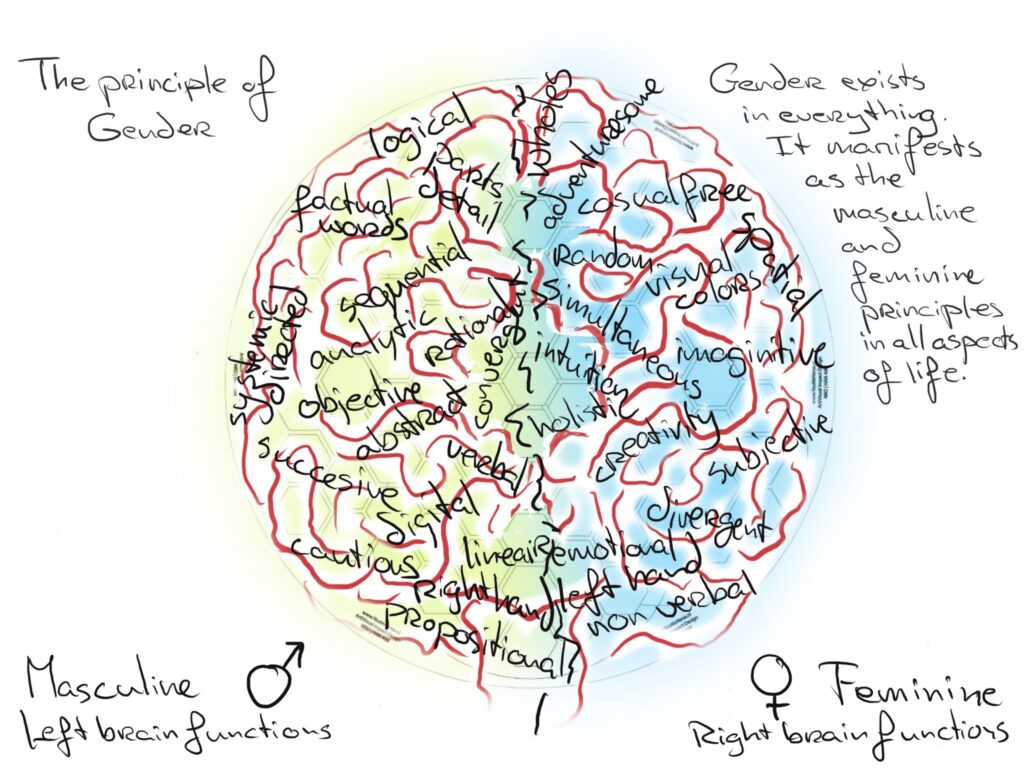 The principle of
Gender
Gender exists
in everything.
It manifests
as the
masculine
and
feminine
principles
in all aspects
of life.
logical
parts
detail
factual
words
sequential
systemic
directed
analytic
rational
convergent
objective
abstract
verbal
succesive
digital
cautious
lineair
Right hand
propositional
wholes
adventuresome
casual free
Random
visual
colors
spatial
simultaneous
intuition
imaginitive
holistic
creativity
subjective
divergent
emotional
left hand
non verbal
Masculine
Left brain functions
Feminine
Right brain functions